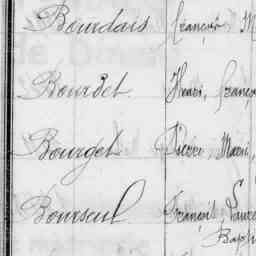 Bourdais François, M
Bourdet. Henri, franço
Bourget Pierre, Marie,
Bourseul François, Laure
Bapti